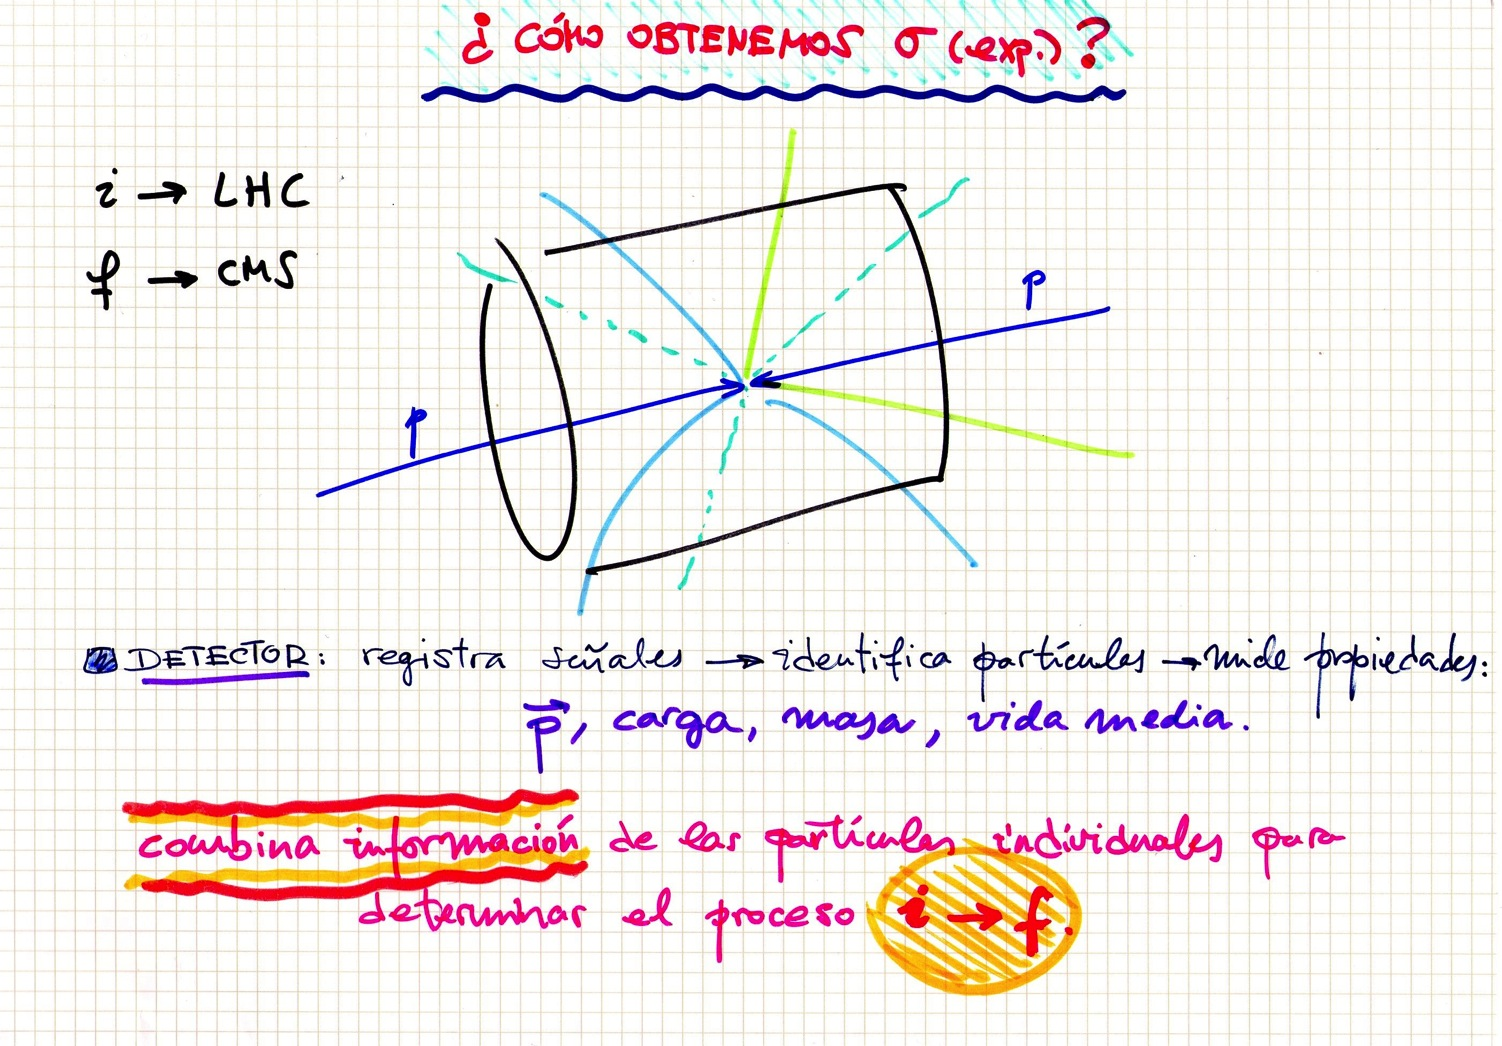 ¿CÓMO OBTENEMOS σ (exp.)?
i → LHC
f → CMS
p
p
DETECTOR: registra señales → identifica partículas → mide propiedades:
p⃗, carga, masa, vida media.
combina información de las partículas individuales para
determinar el proceso i → f.